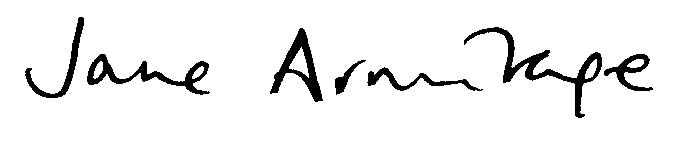 Jane Armitage